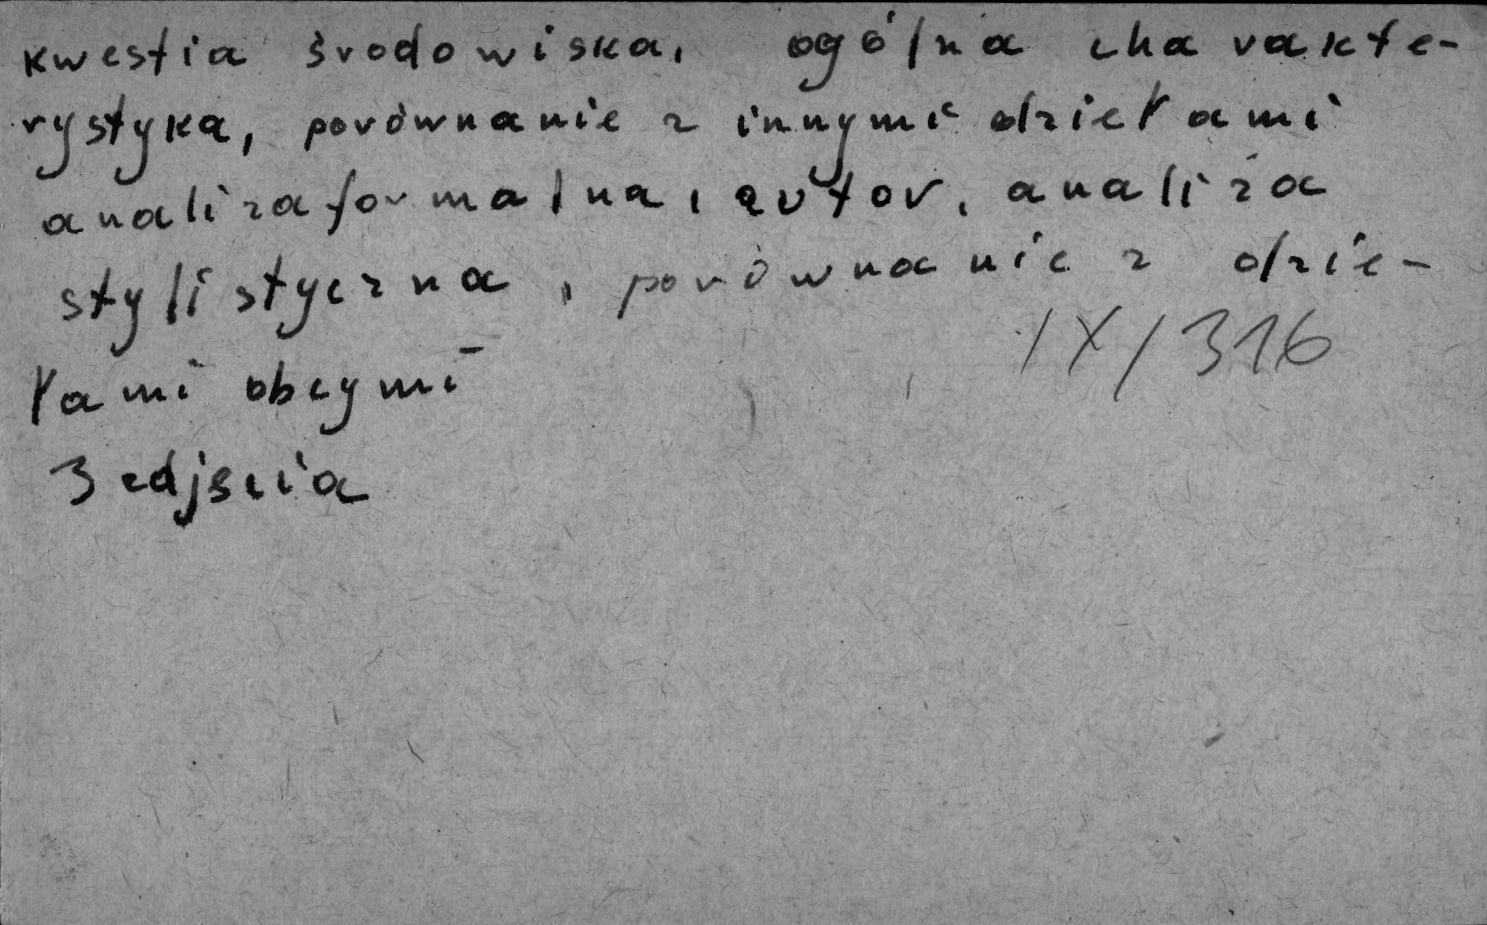 kwestia środowiska, ogólna charakte-
rystyka, porównanie z innymi dziełami
analiza formalna, autor, analiza
stylistyczna, porównanie z dzie-
łami obcymi
IX/316
3 zdjscia